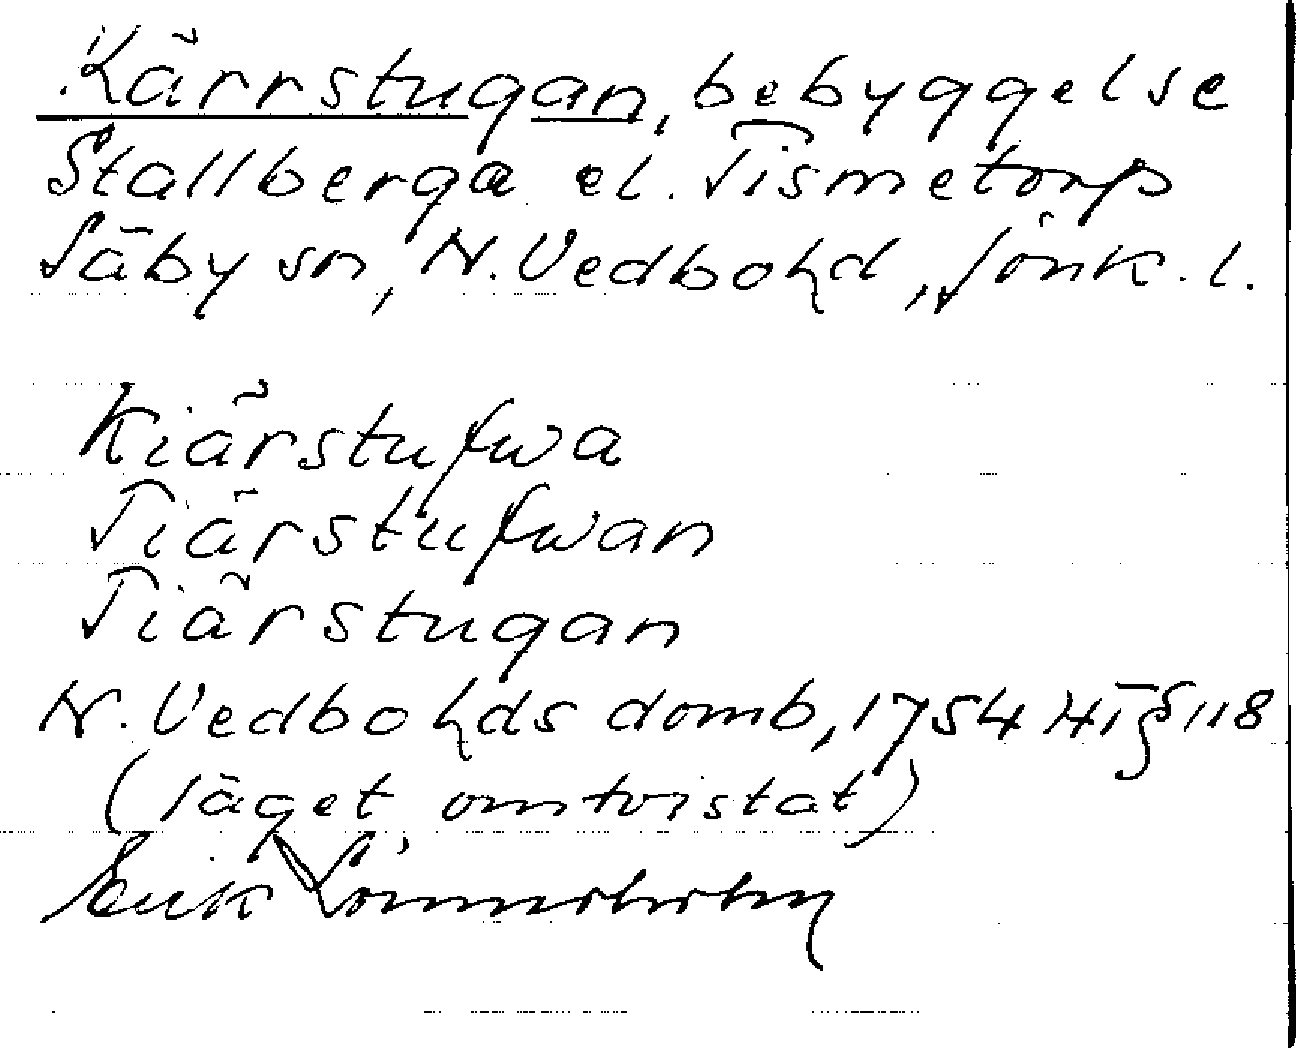 Kärrstugan, bebyggelse
Stallberga el. Tismetorp
Säby sn, N. Vedbohd, Jönk. l.
Kiärstufwa
Tiärstufwan
Tiärstugan
N. Vedbohds domb, 1754 HT § 118
(läget omtvistat)
Erik Lönnerholm